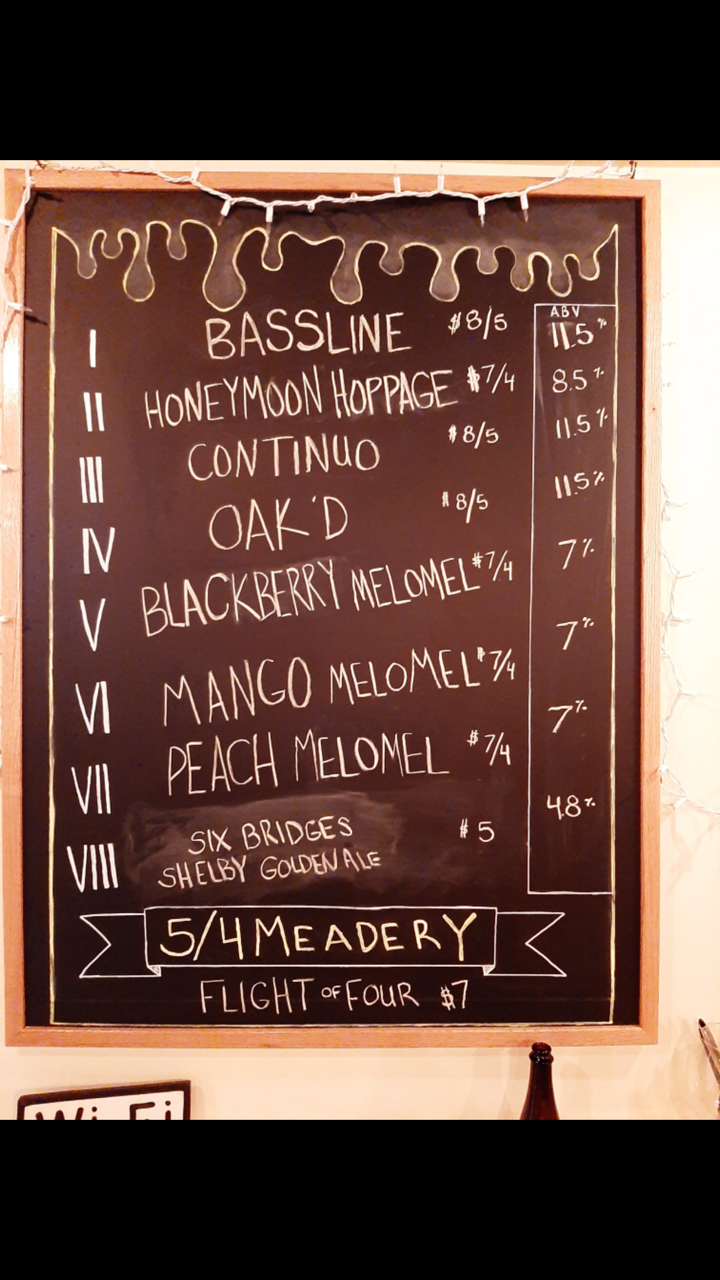 ABV
I BASSLINE $8/5 11.5%
II HONEYMOON HOPPAGE $7/4 8.5%
III CONTINUO $8/5 11.5%
IV OAK'D $8/5 11.5%
V BLACKBERRY MELOMEL $7/4 7%
VI MANGO MELOMEL $7/4 7%
VII PEACH MELOMEL $7/4 7%
VIII SIX BRIDGES $5 4.8%
SHELBY GOLDEN ALE
5/4 MEADERY
FLIGHT OF FOUR $7
Wi-Fi